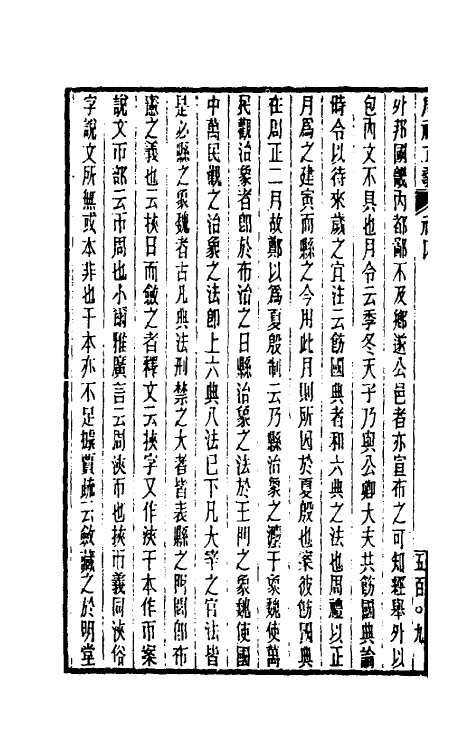 外邦國畿内都鄙不及鄉遂公邑者亦宣布之可知經舉外以
包内文不具也月令云季冬天子乃與公卿大夫共飭國典論
時令以待來歲之宜注云飭國典者和六典之法也周禮以正
月爲之建寅而縣之今用此月則所因於夏殷也案彼飭國典
在周正二月故鄭以爲夏殷制云乃縣治象之灋于象魏使萬
民觀治象者卽於布治之日縣治象之法於王門之象魏使國
中萬民觀之治象之法卽上六典八法已下凡大宰之官法皆
是必縣之象魏者古凡典法刑禁之大者皆表縣之門閭卽布
憲之義也云挾日而斂之者釋文云挾字又作浹干本作帀案
說文帀部云帀周也小爾雅廣言云周浹帀也挾帀義同浹俗
字說文所無或本非也干本亦不足據賈疏云斂藏之於明堂
五百〇九